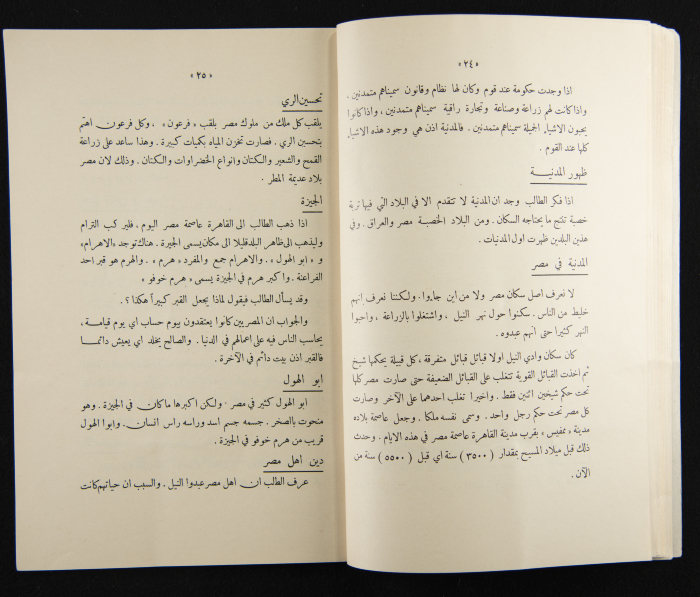 «٢٤»
اذا وجدت حكومة عند قوم وكان لها نظام وقانون سميناهم متمدنين .
واذا كانت لهم زراعة وصناعة وتجارة راقية سميناهم متمدنين . واذا كانوا
يحبون الاشياء الجميلة سميناهم متمدنين . فالمدنية اذن هي وجود هذه الاشياء
كلها عند القوم .
ظهور المدنيــة
اذا فكر الطالب وجد ان المدنية لا تتقدم الا في البلاد التي فيها تربة
خصبة تنتج ما يحتاجه السكان . ومن البلاد الخصبة مصر والعراق . وفي
هذين البلدين ظهرت اول المدنيات .
المدنية في مصر
لا نعرف اصل سكان مصر ولا من اين جاءوا . ولكننا نعرف انهم
خليط من الناس . سكنوا حول نهر النيل ، واشتغلوا بالزراعة ، واحبوا
النهر كثيرا حتى انهم عبدوه .
كان سكان وادي النيل اولا قبائل قبائل متفرقة ، كل قبيلة يحكمها شيخ
ثم اخذت القبائل القوية تتغلب على القبائل الضعيفة حتى صارت مصر كلها
تحت حكم شيخين اثنين فقط . واخيرا تغلب احدهما على الآخر وصارت
كل مصر تحت حكم رجل واحد . وسمى نفسه ملكا . وجعل عاصمة بلاده
مدينة «ممفيس» بقرب مدينة القاهرة عاصمة مصر في هذه الايام . وحدث
ذلك قبل ميلاد المسيح بمقدار ( ٣٥٠٠ ) سنة اي قبل ( ٥٥٠٠ ) سنة من
الآن .
«٢٥»
تحسين الري
يلقب كل ملك من ملوك مصر بلقب « فرعون » . وكل فرعون اهتم
بتحسين الري . فصارت تخزن المياه بكميات كبيرة . وهذا ساعد على زراعة
القمح والشعير والكتان وانواع الخضراوات والكتان . وذلك لان مصر
بلاد عديمة المطر .
الجيزة
اذا ذهب الطالب الى القاهرة عاصمة مصر اليوم ، فليركب الترام
وليذهب الى ظاهر البلد قليلا الى مكان يسمى الجيزة . هناك توجد «الاهرام»
و « ابو الهول » . والاهرام جمع والمفرد « هرم » . والهرم هو قبر احد
الفراعنة . واكبر هرم في الجيزة يسمى « هرم خوفو »
وقد يسأل الطالب فيقول لماذا يجعل القبر كبيراً هكذا ؟ .
والجواب ان المصريين كانوا يعتقدون بيوم حساب اي يوم قيامة .
يحاسب الناس فيه على اعمالهم في الدنيا . والصالح يخلد اي يعيش دائمـا
فالقبر اذن بيت دائم في الآخرة .
ابو الهول
ابو الهول كثير في مصر . ولكن اكبرها ما كان في الجيزة . وهو
منحوت بالصخر . جسمه جسم اسد وراسه راس انسان . وابوا الهول
قريب من هرم خوفو في الجيزة .
دين اهل مصر
عرف الطالب ان اهل مصر عبدوا النيل . والسبب ان حياتهم كانت